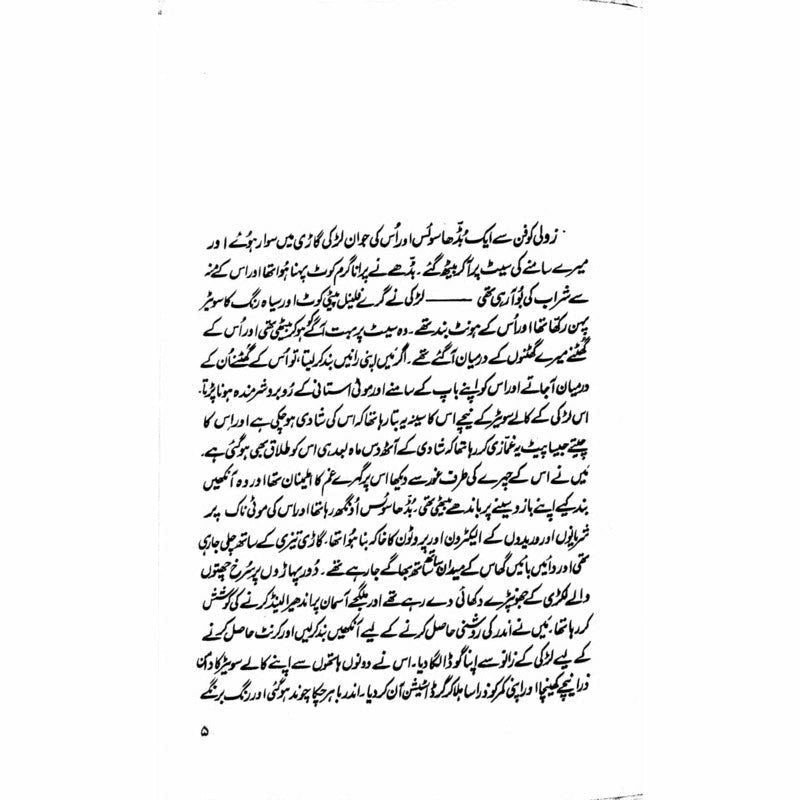 زولی کوفن سے ایک بڈھا سوئس اور اُس کی جوان لڑکی گاڑی میں سوار ہوئے اور
میرے سامنے کی سیٹ پر آ کر بیٹھ گئے۔ بڈھے نے پرانا گرم کوٹ پہنا ہوا تھا اور اس کے منہ
سے شراب کی بُو آ رہی تھی ——— لڑکی نے گرے فلینل پیٹی کوٹ اور سیاہ رنگ کا سویٹر
پہن رکھا تھا اور اُس کے ہونٹ بند تھے۔ وہ سیٹ پر بہت آگے ہو کر بیٹھی تھی اور اُس کے
گھٹنے میرے گھٹنوں کے درمیان آ گئے تھے۔ اگر میں اپنی رانیں بند کر لیتا، تو اُس کے گھٹنے اُن کے
درمیان آ جاتے اور اس کو اپنے باپ کے سامنے اور موٹی استانی کے رُوبرو شرمندہ ہونا پڑتا۔
اس لڑکی کے کالے سویٹر کے نیچے اس کا سینہ یہ بتا رہا تھا کہ اس کی شادی ہو چکی ہے اور اِس کا
چیتے جیسا پیٹ یہ غمازی کر رہا تھا کہ شادی کے آٹھ دس ماہ بعد ہی اس کو طلاق بھی ہو گئی ہے۔
میں نے اس کے چہرے کی طرف غور سے دیکھا اس پر گہرے غم کا اطمینان تھا اور وہ آنکھیں
بند کیے اپنے بازو سینے پر باندھے بیٹھی تھی۔ بڈھا سوئس اونگھ رہا تھا اور اس کی موٹی ناک پر
شریانوں اور وریدوں کے الیکٹرون اور پروٹون کا خاکہ بنا ہوا تھا۔ گاڑی تیزی کے ساتھ چلی جا رہی
تھی اور دائیں بائیں گھاس کے میدان ساتھ ساتھ بھاگے جا رہے تھے۔ دُور پہاڑوں پر سُرخ چھتوں
والے لکڑی کے جھونپڑے دکھائی دے رہے تھے اور ملگجے آسمان پر اندھیرا لینڈ کرنے کی کوشش
کر رہا تھا۔ میں نے اندر کی روشنی حاصل کرنے کے لیے آنکھیں بند کر لیں اور کرنٹ حاصل کرنے
کے لیے لڑکی کے زانو سے اپنا گوڈا لگا دیا۔ اس نے دونوں ہاتھوں سے اپنے کالے سویٹر کا دامن
ذرا نیچے کھینچا اور اپنی کمر کو ذرا سا ہلا کر گرڈ اسٹیشن آن کر دیا۔ اندر باہر چکا چوند ہو گئی اور رنگ برنگے
۵